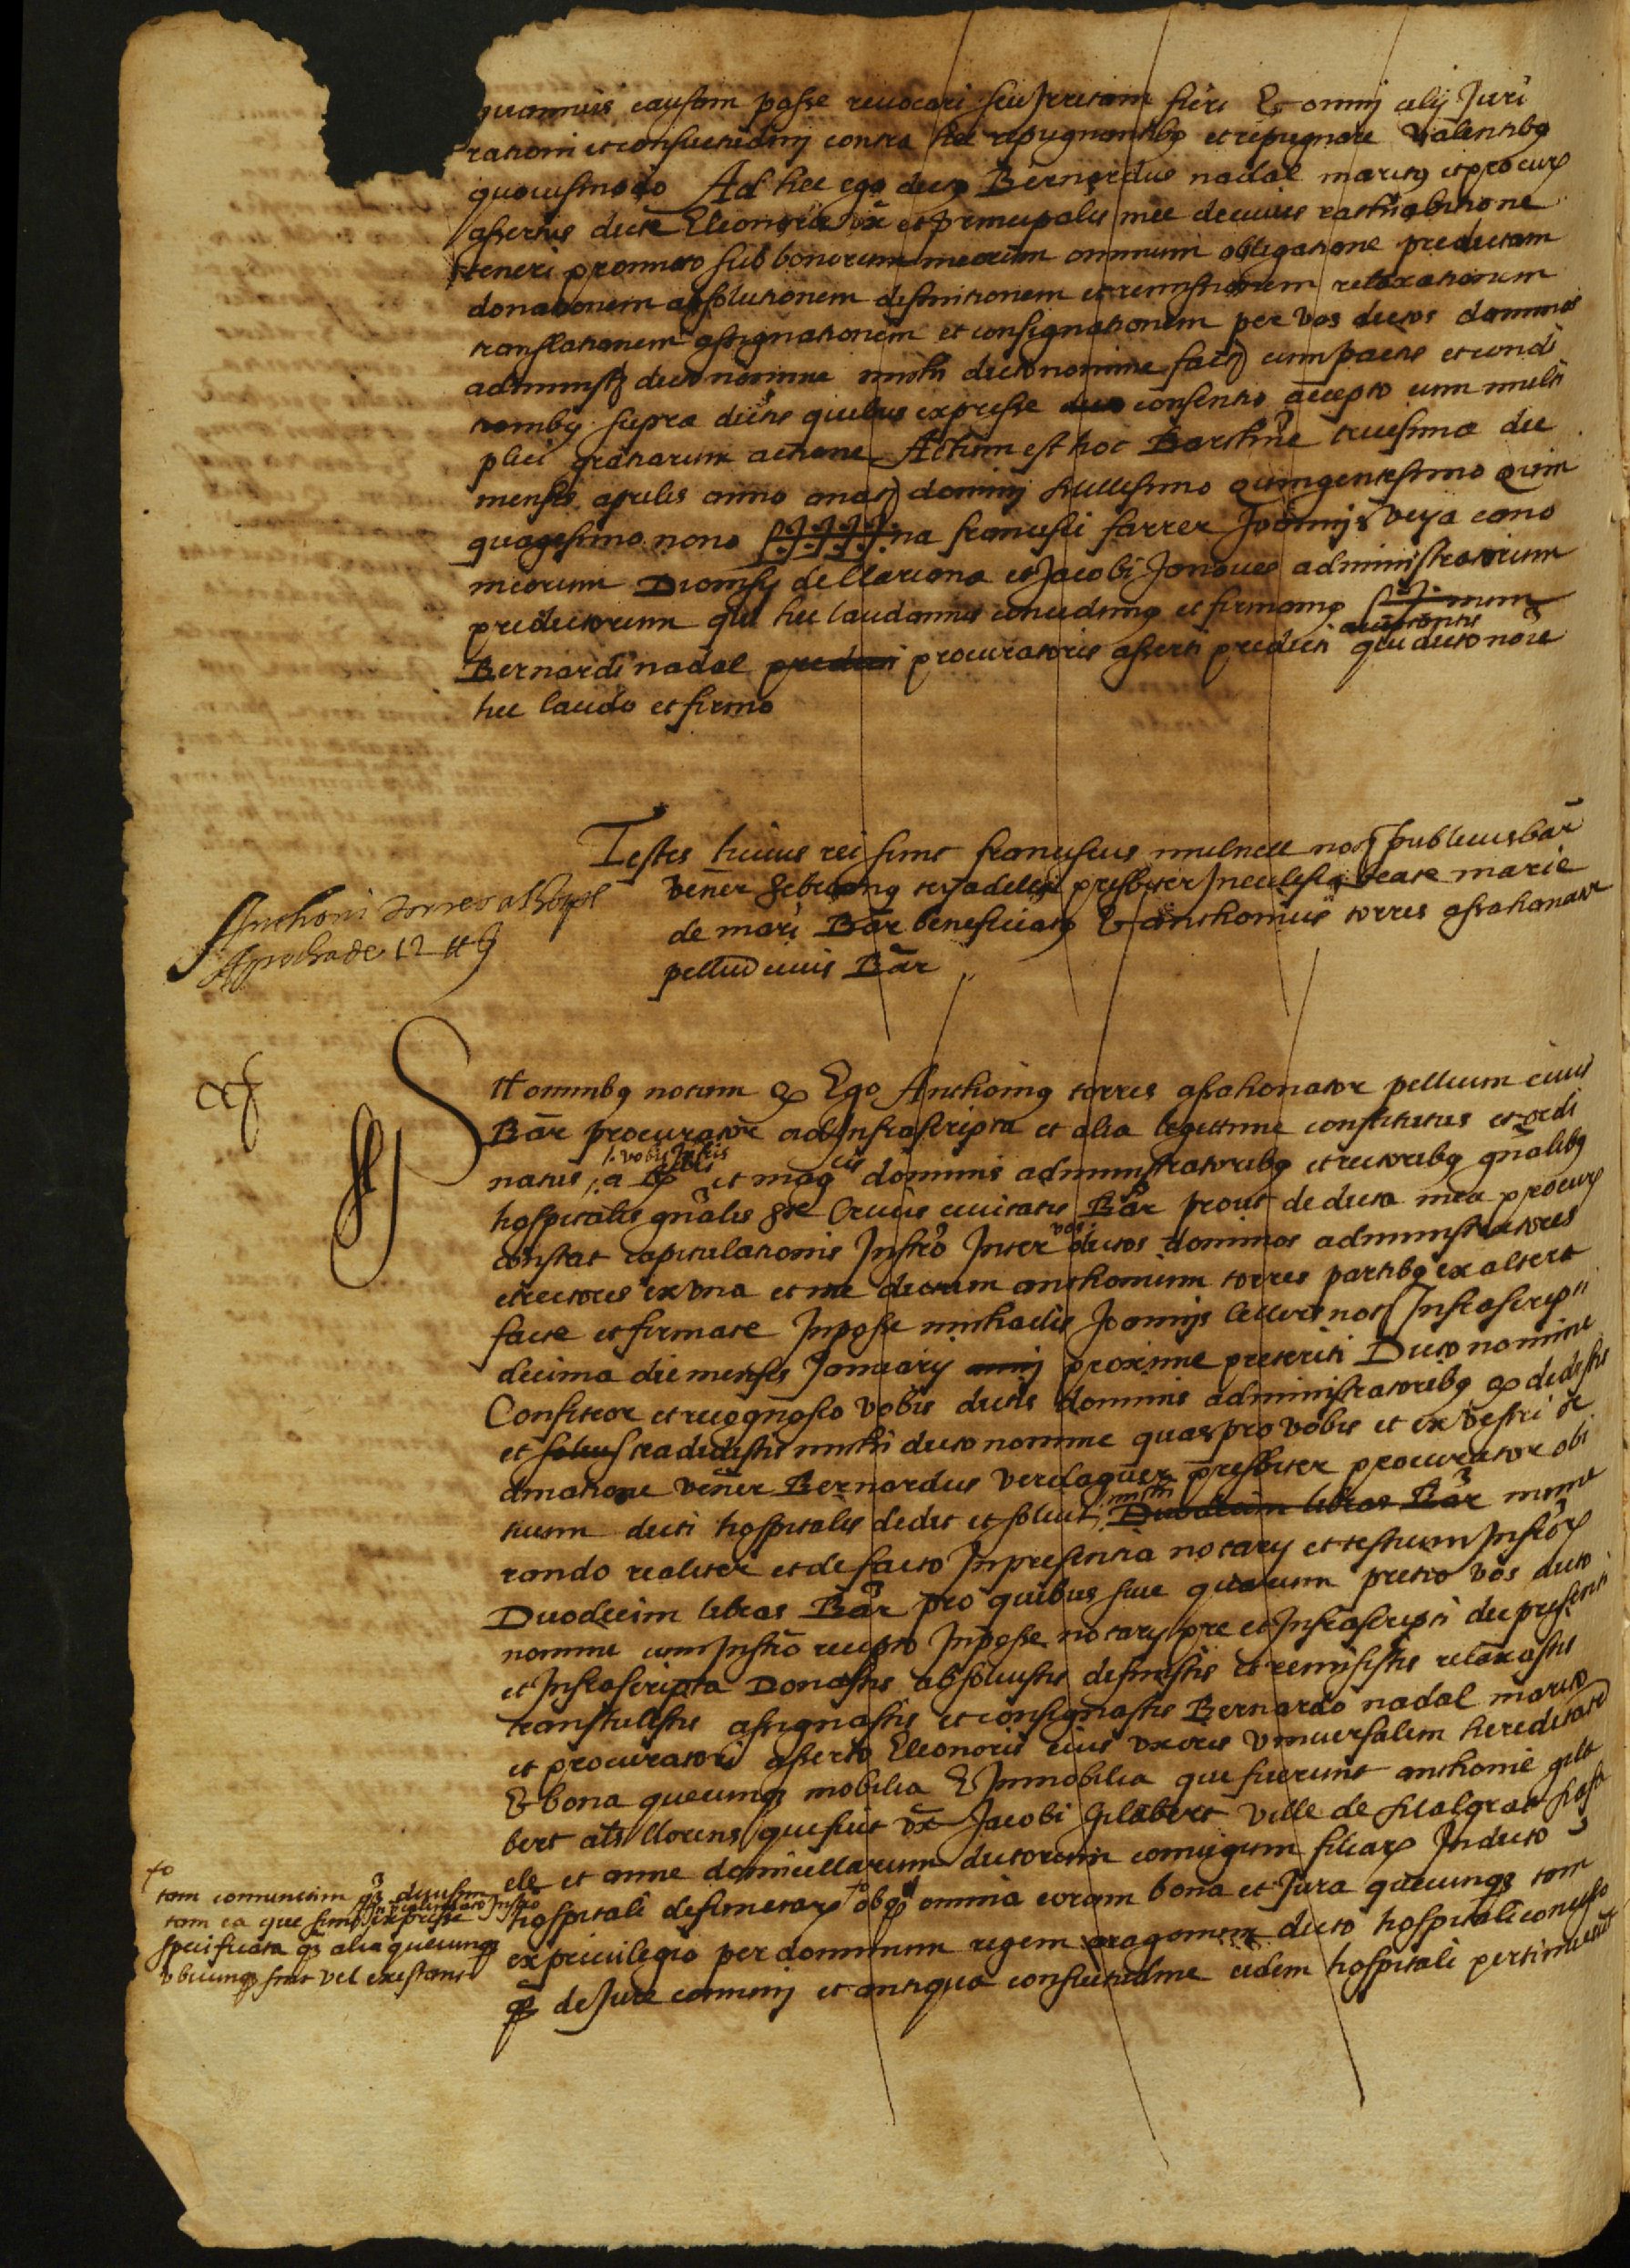 quamvis causam posse revocari seu Irritam fieri Et omnij alij Juri
rationi et consuetudinj contra hec repugnantibȝ et repugnare valentibȝ
quovismodo Ad hec ego dictȝ Bernardus nadal maritȝ et procurꝝ
assertus dicte Eleonoris vx̄ et principalis mee de cuius ratihabitione
teneri promitto sub bonorum meorum omnium obligatione predictam
donationem absolutionem definitionem et remissionem relaxationem
translationem assignationem et consignationem per vos dictos dominos
administꝝ dicto nomine mihi dicto nomine factꝭ cum pactis et condi
tionibȝ supra dictis quibus expresse consentio accepto cum multi
plici gratiarum actione Actum est hoc Barchine tricesima die
mensis aprilis anno a natꝭ dominj Millesimo quingentesimo quin
quagesimo nono S+++++na francisci farrer Joannis veya cano
nicorum Dionisij de llariona et Jacobi Jonoves administratorum
predictorum qui hec laudamus concedimȝ et firmamȝ S+num
Bernardi nadal predicti procuratoris asserti predicti acceptantis qui dicto noīe
hec laudo et firmo
Testes huius rei sunt franciscus mulnell notꝭ publicus bar̄
vener̄ Sebastianȝ presbiter In ecclesia beate marie
de mari Bar̄ beneficiatȝ Et anthonius torres assahonator
pelliū civis Bar̄
Anthoni torres
Apocha de 12 ℔
Sit omnibȝ notum ꝙ Ego Anthoniȝ torres assahonator pellium civis
Bar̄ procurator ad Infrascripta et alia legittime constitutus et ordi
natus a vobis et magcis dominis administratoribȝ et rectoribȝ gn̄alibȝ
hospitalis gn̄alis Ste Crucis civitatis Bar̄ prout de dicta mea procurꝝ
constat capitulationis Instrō Inter vos dictos dominos administratores
et rectores ex una et me dictum anthonium torres partibȝ ex altera
facte et firmate In posse michaelis Joannis cellers notꝭ Infrascripti
decima die mensis Januarij proxime preteriti Dicto nomine
Confiteor et recognosco vobis dictis dominis administratoribȝ ꝙ dedistis
et tradidistis mihi dicto nomine quas pro vobis et ex vestri or
dinatione vener̄ Bernardus verdaguer presbiter procurator obi
tuum dicti hospitalis dedit et solvit mihi Duodecim libras Bar̄ nume
rando realiter et de facto In presentia notarij et testium Infrꝝ
Duodecim libras Bar̄ pro quibus sive quarum pretio vos dicto
nomine cum Instrō recepto In posse notarij pre et Infrascripti die presenti
et Infrascripta Donastis absolvistis definistis et remisistis relaxastis
transtulistis assignastis et consignastis Bernardo nadal marito
et procuratori asserto Eleonoris eius uxoris universalem hereditatē
Et bona quecunqȝ mobilia Et Immobilia que fuerunt anthonie gila
bert als llorens que fuit vx̄ Jacobi Gilabert ville de
ele et anne domicellarum dictorum coniugum filiarꝝ In dicto
hospitali defunctarꝝ ob ꝙ omnia eoram bona et Jura quecunqȝ tam
ex privilegio per dominum regem aragonum dicto hospitali concesso
ꝙ̄ de Jure comunj et antiqua consuetudine eidem hospitali pertinuerūt
tam comunctim ꝙ̄ divisim
tam ea que sunt In calendato Instrō expresse
specificata ꝙ̄ alia quecunqȝ
ubicunqȝ sint vel existant